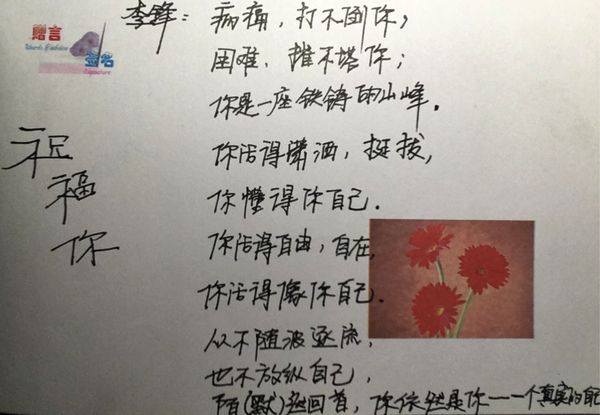 赠言
签名
祝福你
李锋：病痛，打不倒你；
困难，摧不垮你；
你是一座铁铸的山峰。
你活得潇洒，挺拔，
你懂得你自己．
你活得自由，自在，
你活得像你自己．
从不随波逐流，
也不放纵自己，
蓦回首，你依然是你——一个真实的自己